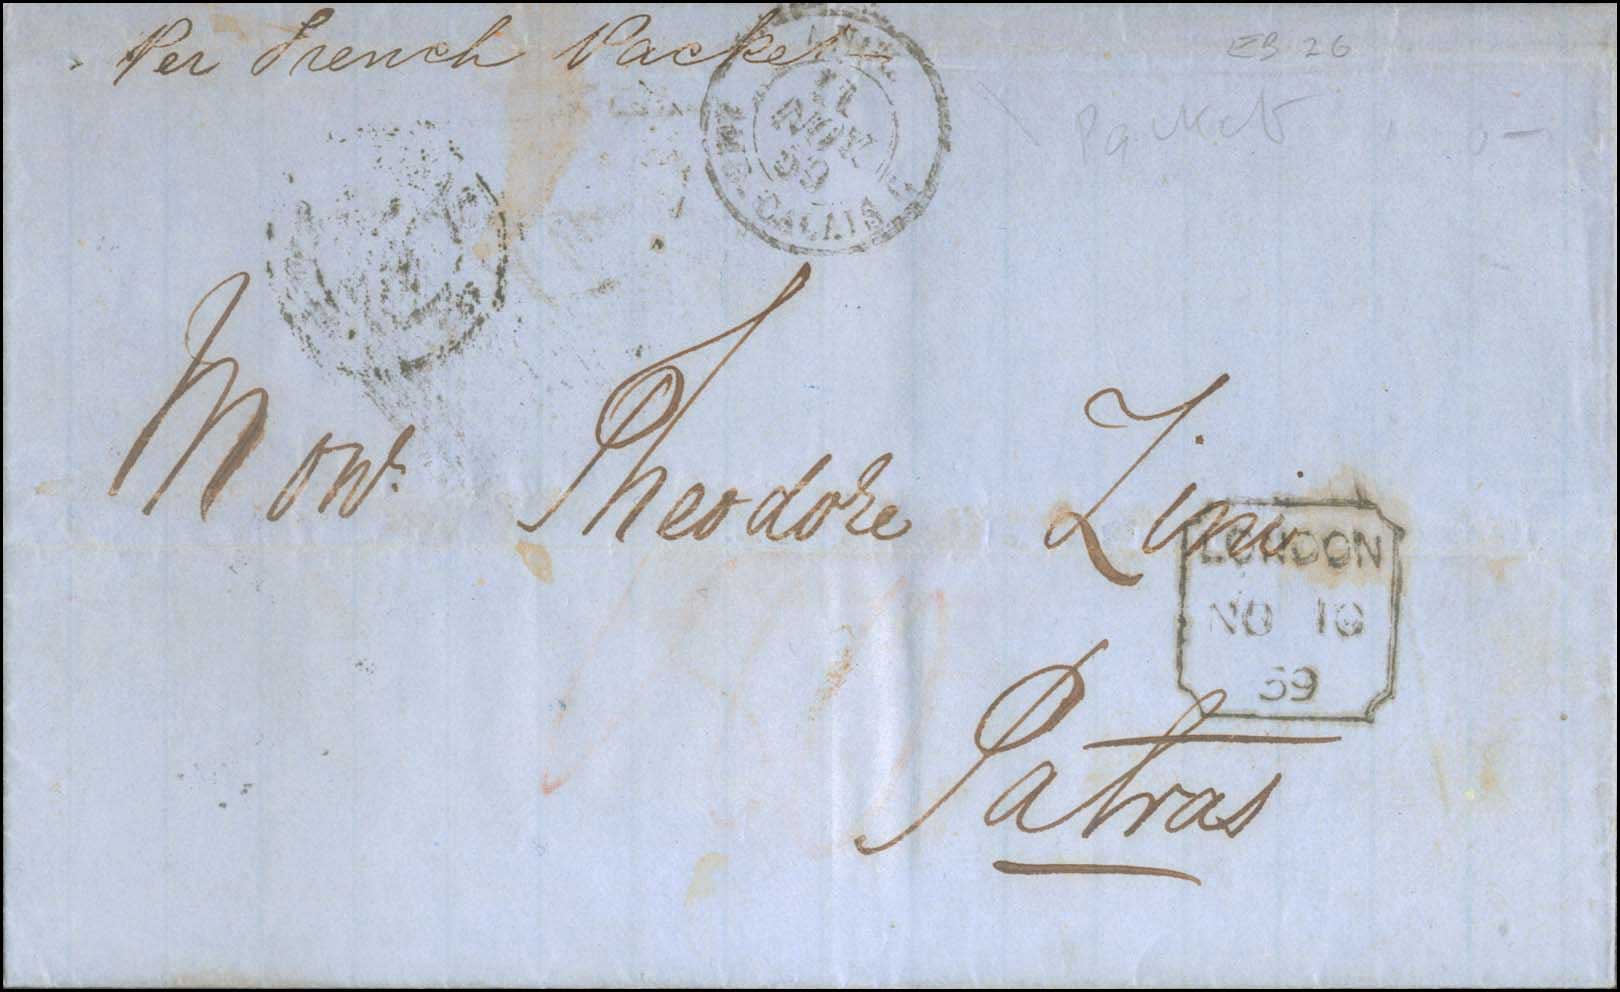 Per French Packet
EB 26
Packet
11
NOV.
59
CALAIS
Monr. Theodore Zini
LONDON
NO 10
59
Patras